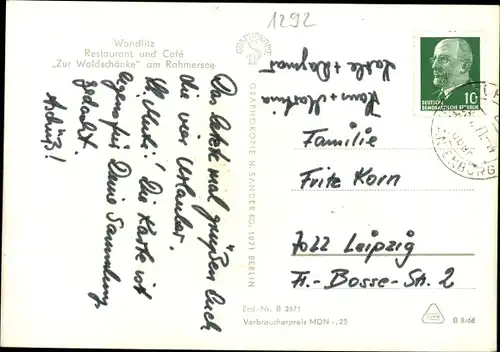 1292
Wandlitz
Restaurant und Café
„Zur Waldschänke“ am Rahmersee
Das letzte mal grüßen Euch
die vier Urlauber.
Die Karte ist
für Deine Sammlung
gedacht.
Tschüß!
Hans + Martina
+ Dagmar
GRAPHOKOPIE H. SANDER KG, 1071 BERLIN
Best.-Nr. B 2671
Verbraucherpreis MDN -,25
DEUTSCHE
DEMOKRATISCHE REPUBLIK
10
Familie
Fritz Korn
7022 Leipzig
Fr.-Bosse-Str. 2
B 8/68